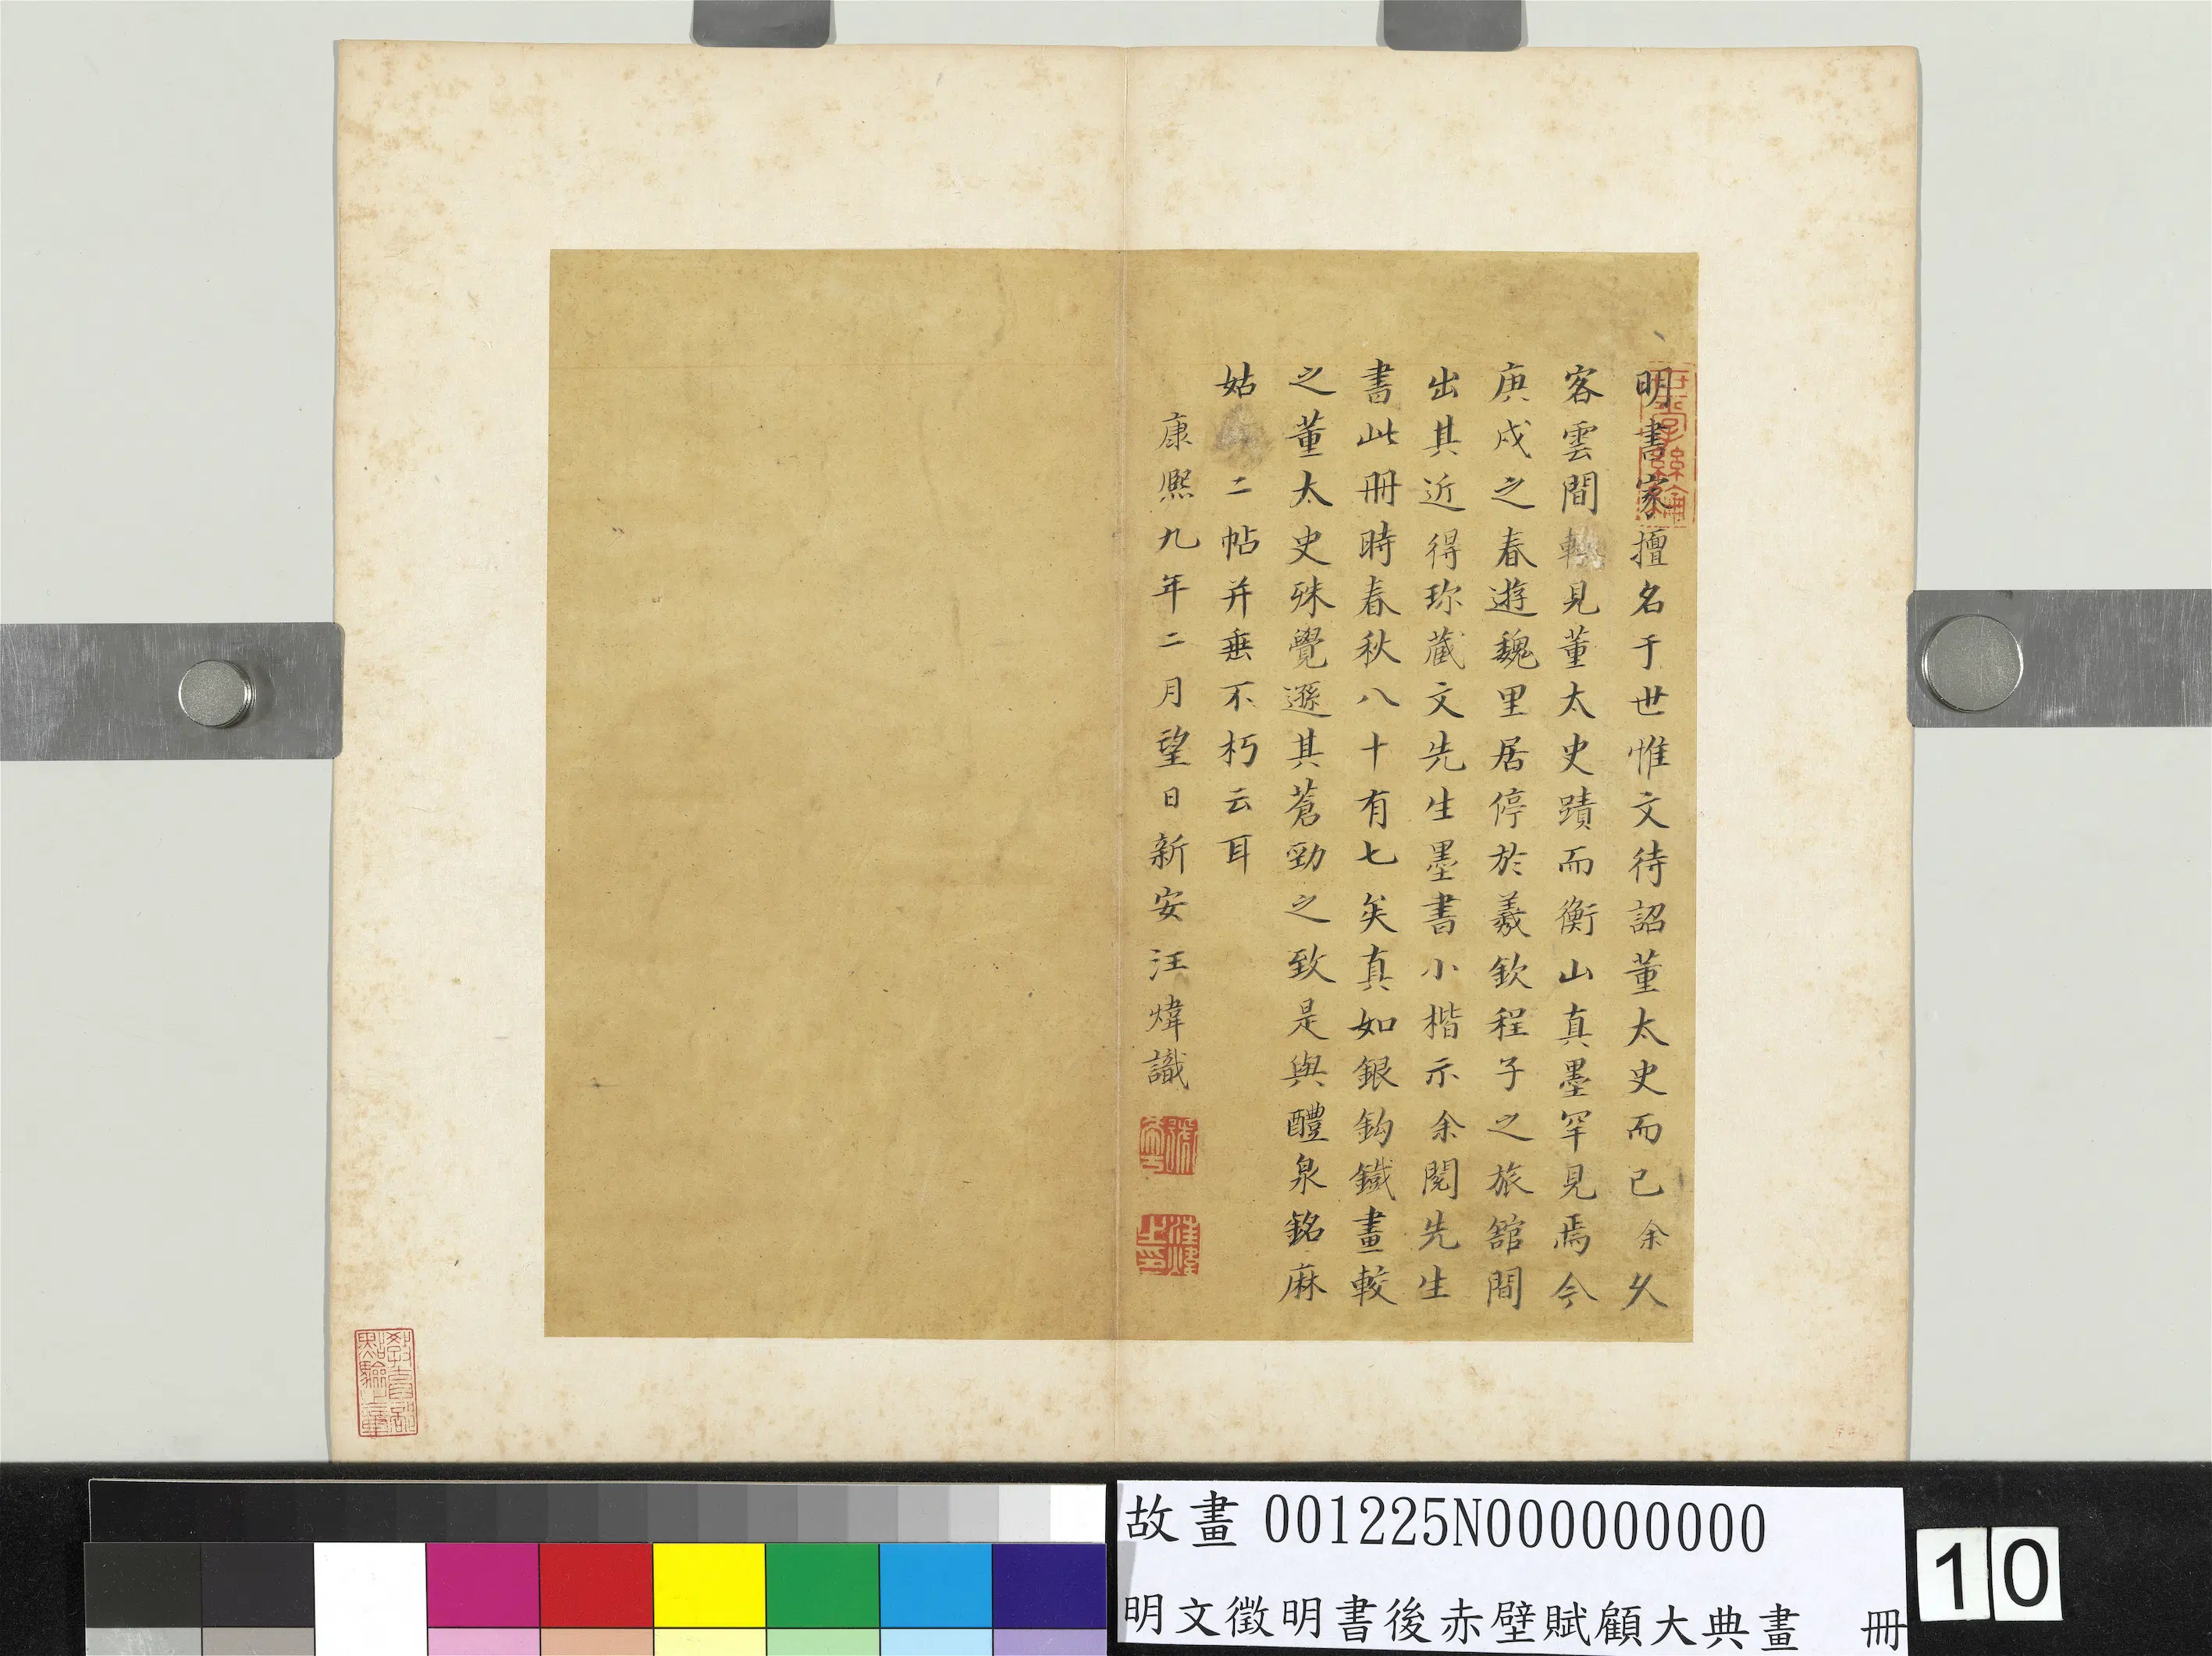 明書家擅名于世惟文待詔董太史而已余久
客雲間輒見董太史蹟而衡山真墨罕見焉今
庚戌之春遊魏里居停於羲欽程子之旅舘間
出其近得珎藏文先生墨書小楷示余閱先生
書此冊時春秋八十有七矣真如銀鈎鐵畫較
之董太史殊覺遜其蒼勁之致是與醴泉銘麻
姑二帖并垂不朽云耳
康熙九年二月望日新安汪煒識
汪煒之印
教育部點驗之章
故畫 001225N000000000
明文徵明書後赤壁賦顧大典畫 冊
10